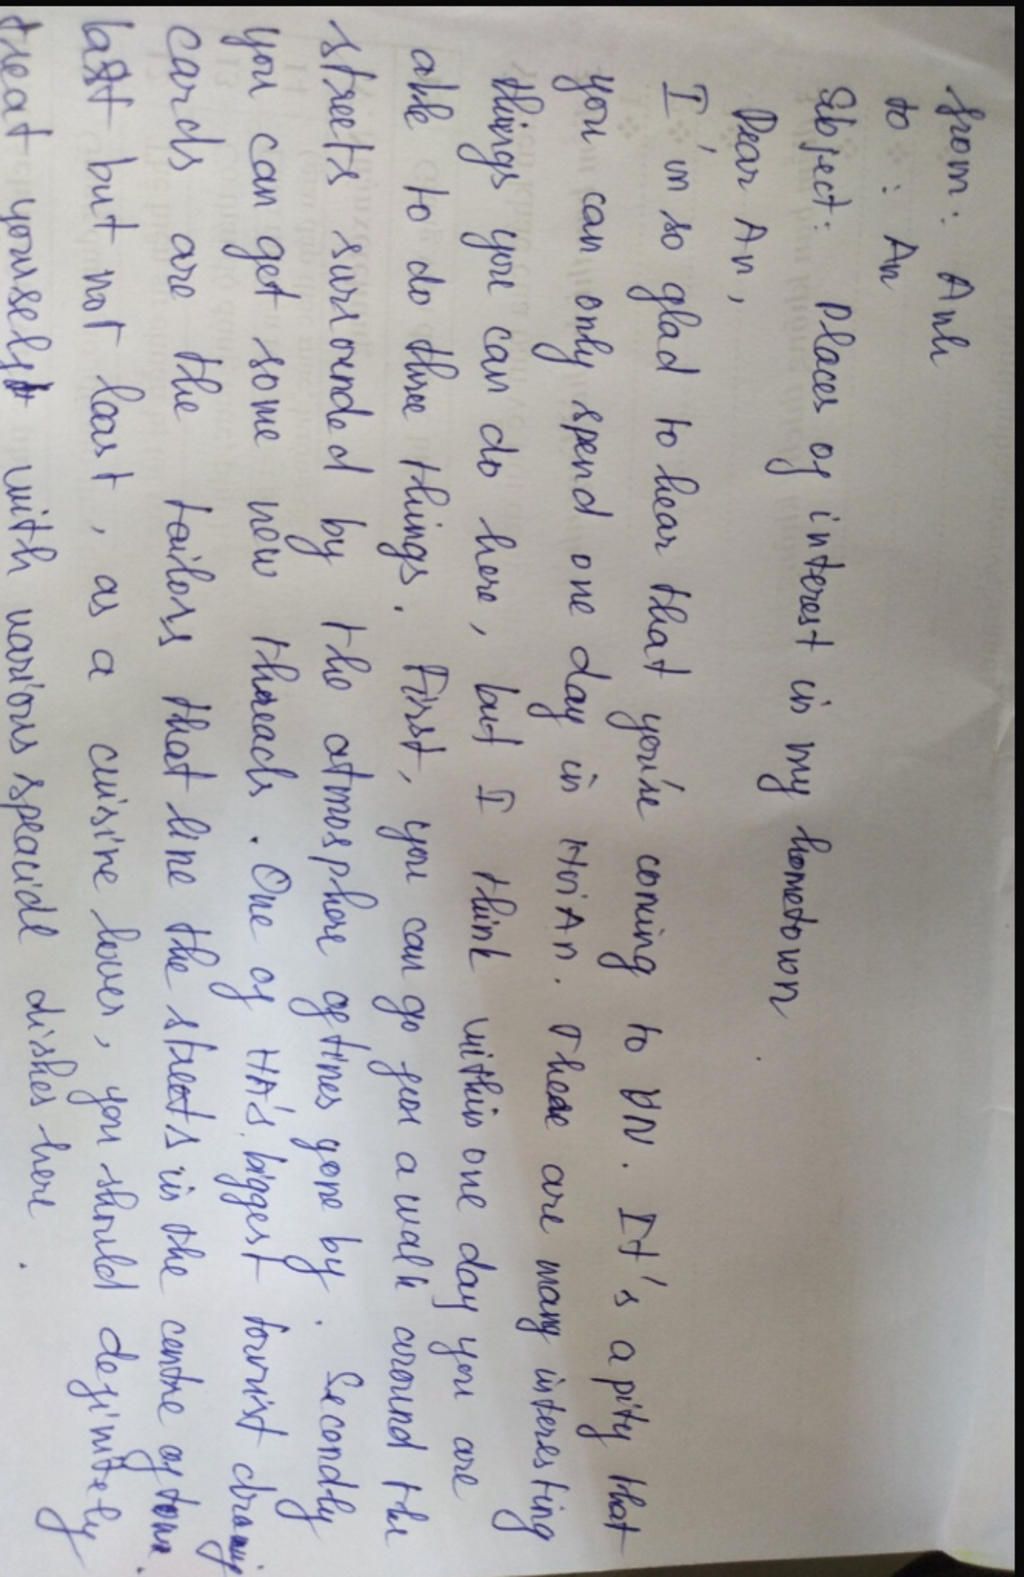 from: Anh
to: An
Subject: Places of interest in my hometown
Dear An,
I'm so glad to hear that you're coming to DN. It's a pity that
you can only spend one day in HoiAn. There are many interesting
things you can do here, but I think within one day you are
able to do three things. First, you can go for a walk around the
streets surrounded by the atmosphere of times gone by. Secondly
you can get some new threads. One of HA's biggest tourist drawing
cards are the tailors that line the streets in the centre of town.
last but not least, as a cuisine lover, you should definitely
treat yourself with various speacial dishes here.